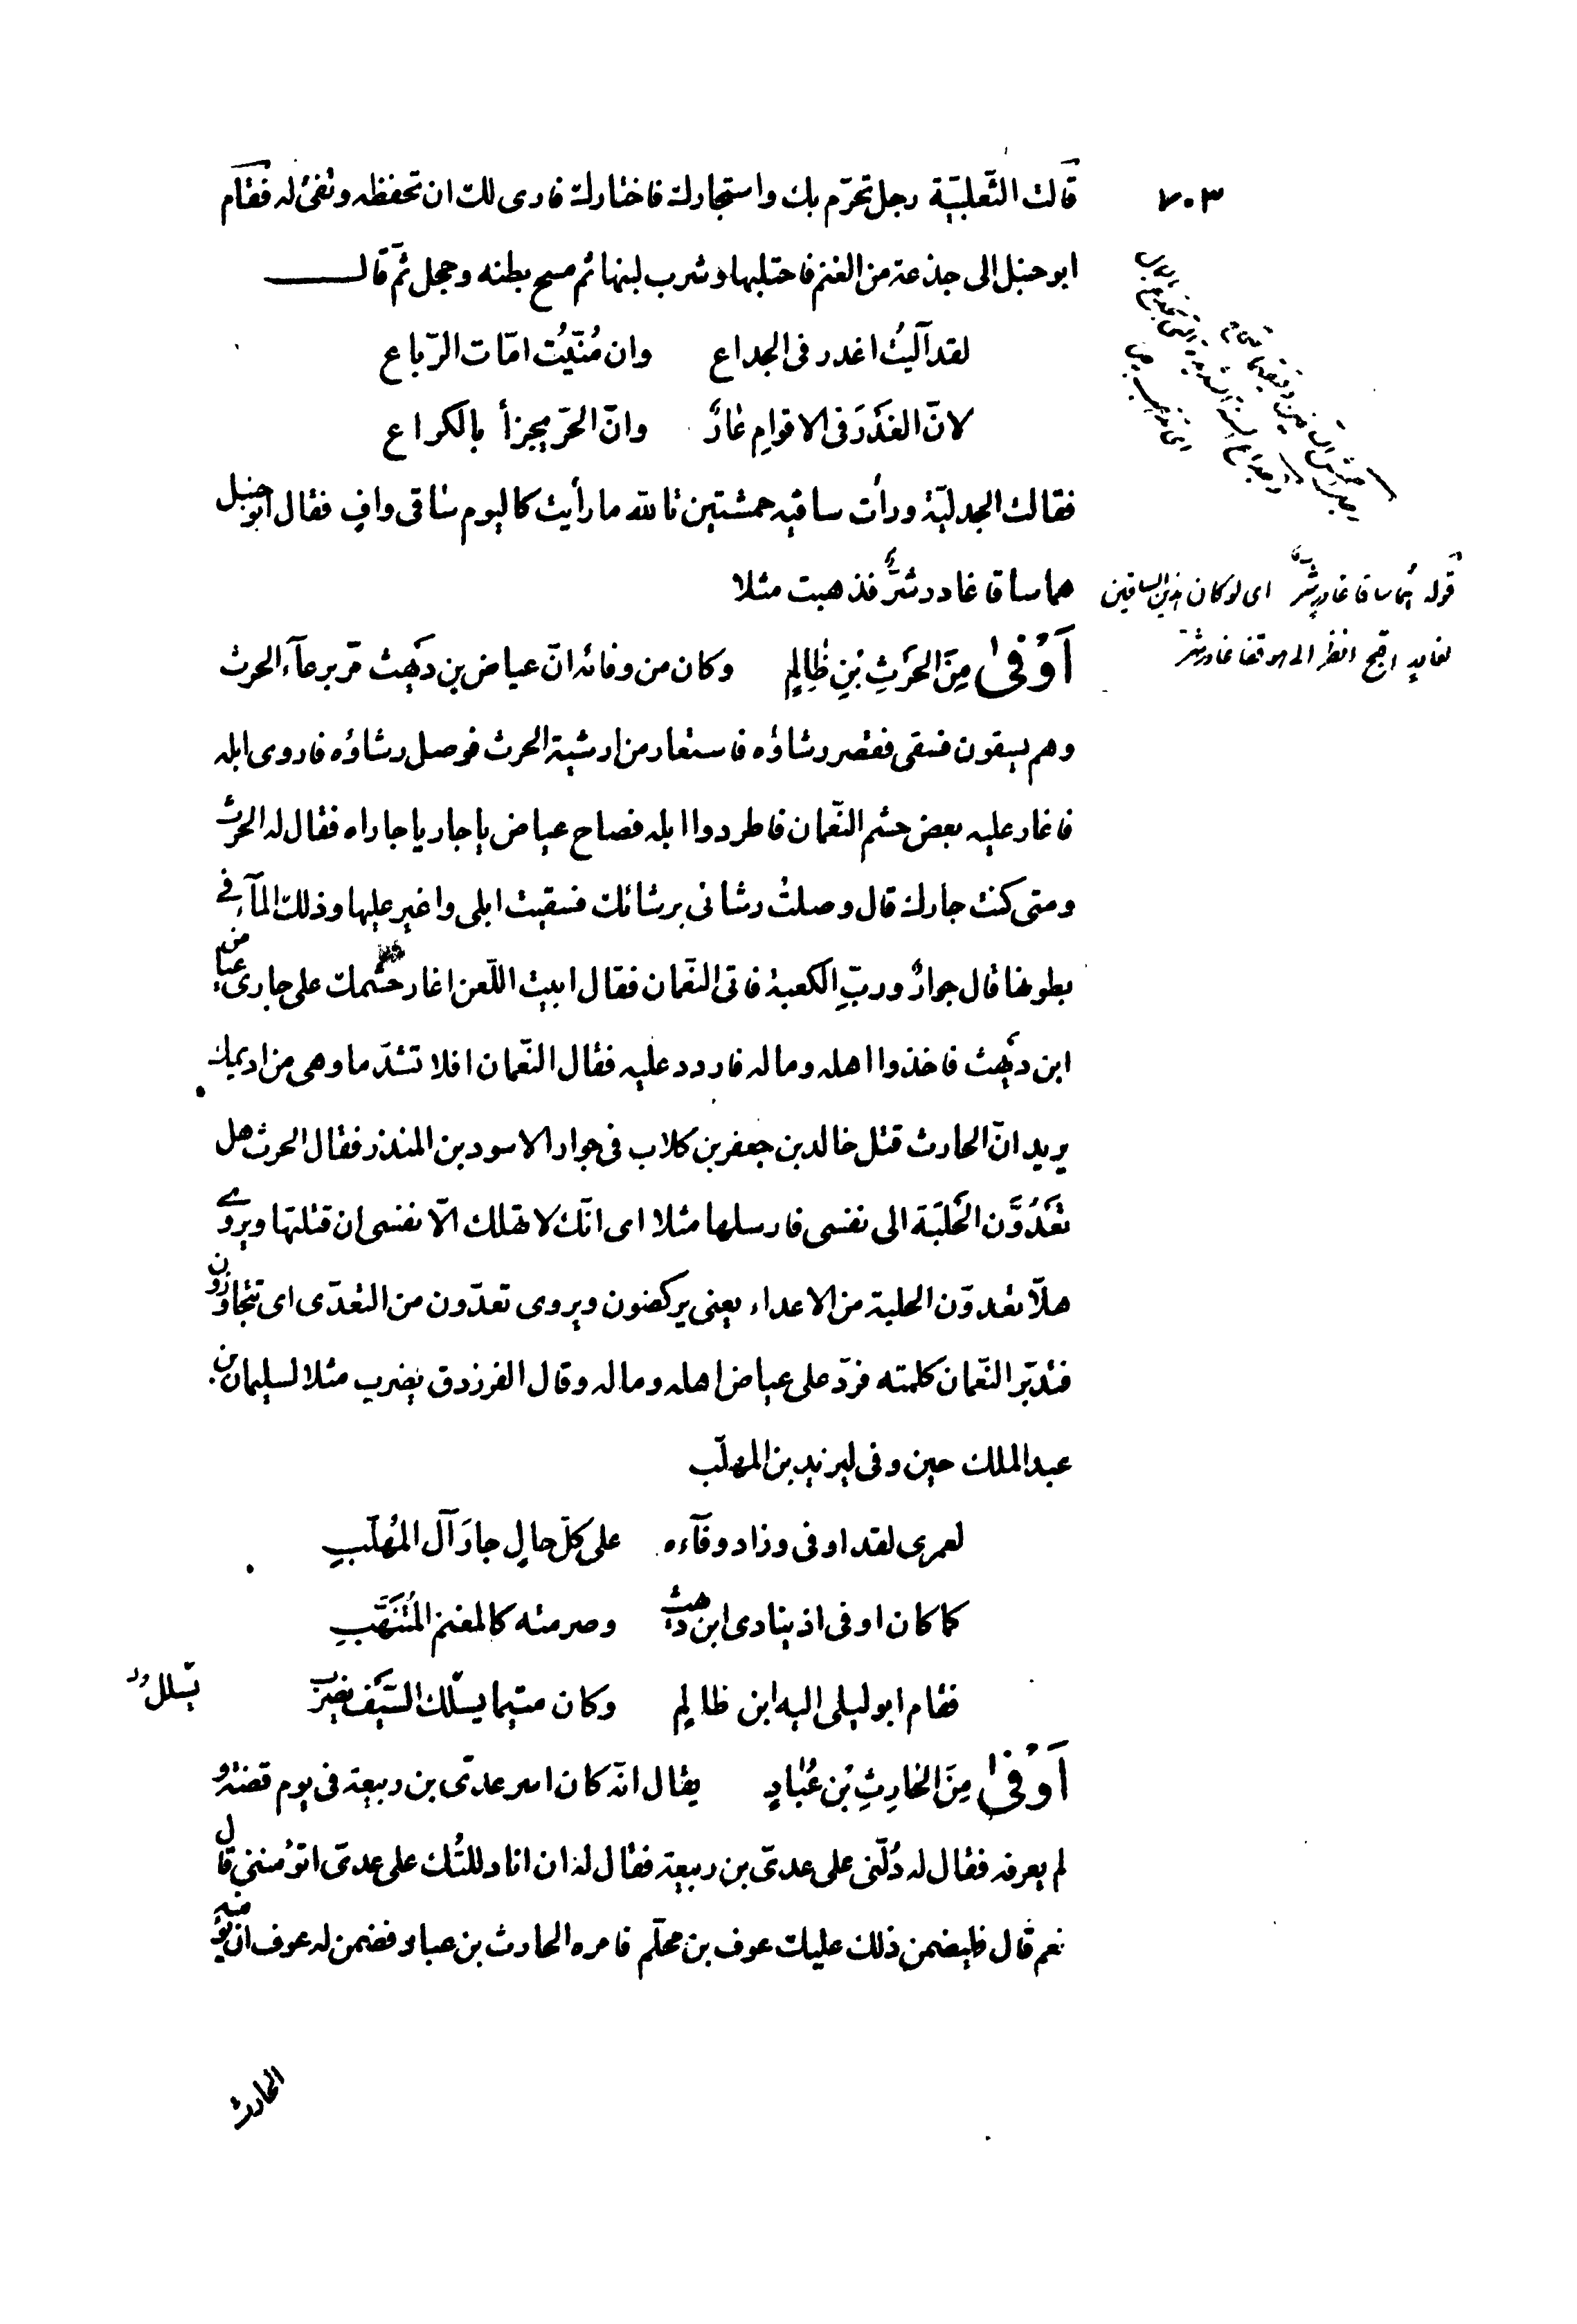 ٧٠٣
قالت الثّعلبيّة رجل تحرّم بك واستجارك فاختارك فارى لك ان تحفظه وتفى له فقام
ابو حنبل الى جذعة من الغنم فاحتلبها وشرب لبنها ثم مسح بطنه وحجل ثمّ قال
لقد آليتُ اغدر فى الجداع وان مُنّيتُ امّات الرّباع
لانّ الغَدْرَ فى الاقوامِ عارٌ وانّ الحَرّ يجزأ بالكراع
فقالت الجدليّة ورأت ساقيه حمشتين تالله ما رأيت كاليوم ساقى وافٍ فقال ابو حنبل
هما ساقا غادر شرٌّ فذهبت مثلا
قوله هما ساقا غادر شر اى لو كان هذين الساقين
لغادر اقبح انظر الى هو قفا غادر شر
اَوْفىٰ مِنَ الحَرْثِ بْنِ ظٰالِمٍ وكان من وفائه انّ عياض بن دَيْهَث مرّ برعآء الحرث
وهم يسقون فسقى فقصر رشاؤه فاستعار من ارشية الحرث فوصل رشاؤه فاروى ابله
فاغار عليه بعض حشم النّعمان فاطردوا ابله فصاح عياض يا جار يا جاراه فقال له الحرث
ومتى كنت جارك قال وصلتُ رشائى برشائك فسقيت ابلى واغير عليها وذلك المآء فى
بطونها قال جوارٌ وربّ الكعبة فاتى النّعمان فقال ابيت اللّعن اغار حشمك على جارى عياض
ابن ديهث فاخذوا اهله وماله فاردد عليه فقال النّعمان افلا تشدّ ما وهى من اديمك
يريد انّ الحارث قتل خالد بن جعفر بن كلاب فى جوار الاسود بن المنذر فقال الحرث هل
تَعْدُوَّن الحَلَبَة الى نفسى فارسلها مثلا اى انّك لا تهلك الّا نفسى ان قتلتها ويروى
هلّا تعدوّن الحلبة من الاعداء يعنى يركضون ويروى تعدّون من التعدّى اى تتجاوزون
فتدبّر النّعمان كلمته فردّ على عياض اهله وماله وقال الفرزدق يضرب مثلا لسليمان بن
عبد الملك حين وفى ليزيد بن المهلّب
لعمرى لقد اوفى وزاد وفآءه على كلّ حالٍ جارَ آل المُهلّبِ
كما كان اوفى اذ ينادى ابن ديهث وصرمته كالمغنم المُتنَهَّبِ
فقام ابو ليلى اليه ابن ظالمٍ وكان متيما يسلّك السَّيف يضرب
يتسلل
اَوْفىٰ مِنَ الحٰارِثِ بْنِ عُبٰادٍ يقال انّه كان اسر عدىّ بن ربيعة فى يوم قضة و
لم يعرفه فقال له دُلّنى على عدىّ بن ربيعة فقال له ان انا دللتُك على عدىّ اتؤمننى قال
نعم قال فليضمن ذلك عليك عوف بن محلّم فامره الحارث بن عباد فضمن له عوف ان يؤمنه
الحارث